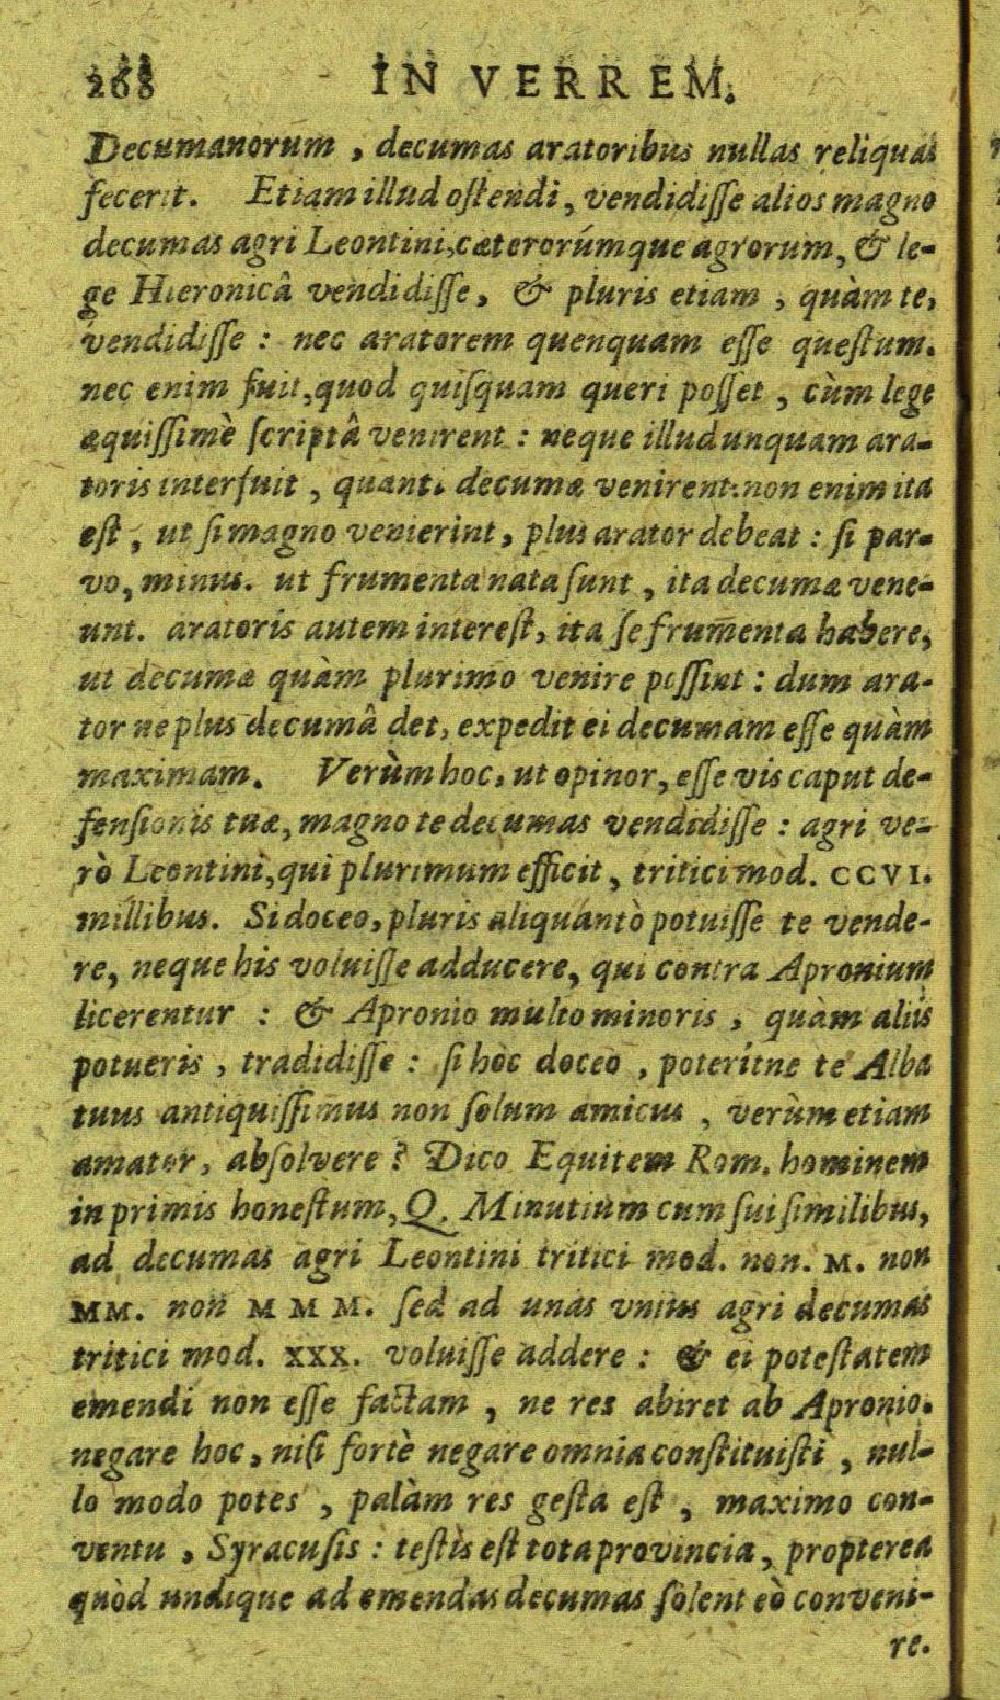 268 IN VERREM.
Decumanorum , decumas aratoribus nullas reliquas
fecerit. Etiam illud ostendi, vendidisse alios magno
decumas agri Leontini, cæterorúmque agrorum, & le-
ge Hieronicâ vendidisse, & pluris etiam , quàm te,
vendidisse : nec aratorem quenquam esse questum.
nec enim fuit, quod quisquam queri posset , cùm lege
æquissimè scriptâ venirent : neque illud unquam ara-
toris interfuit , quanti decumæ venirent: non enim ita
est , ut si magno venierint, plus arator debeat : si par-
vo, minus. ut frumenta nata sunt , ita decumæ vene-
unt. aratoris autem interest, ita se frumenta habere,
ut decumæ quàm plurimo venire possint : dum ara-
tor ne plus decumâ det, expedit ei decumam esse quàm
maximam. Verùm hoc, ut opinor, esse vis caput de-
fensionis tuæ, magno te decumas vendidisse : agri ve-
rò Leontini, qui plurimum efficit , tritici mod. CCVI.
millibus. Si doceo, pluris aliquantò potuisse te vende-
re, neque his voluisse adducere, qui contra Apronium
licerentur : & Apronio multo minoris , quàm aliis
potueris , tradidisse : si hoc doceo , poterítne te Alba
tuus antiquissimus non solum amicus , verùm etiam
amator, absolvere ? Dico Equitem Rom. hominem
in primis honestum, Q. Minutium cum sui similibus,
ad decumas agri Leontini tritici mod. non. M. non
MM. non M M M. sed ad unas unius agri decumas
tritici mod. XXX. voluisse addere : & ei potestatem
emendi non esse factam , ne res abiret ab Apronio.
negare hoc, nisi fortè negare omnia constituisti , nul-
lo modo potes , palàm res gesta est , maximo con-
ventu , Syracusis : testis est tota provincia, propterea
quòd undique ad emendas decumas solent eò conveni-
re.